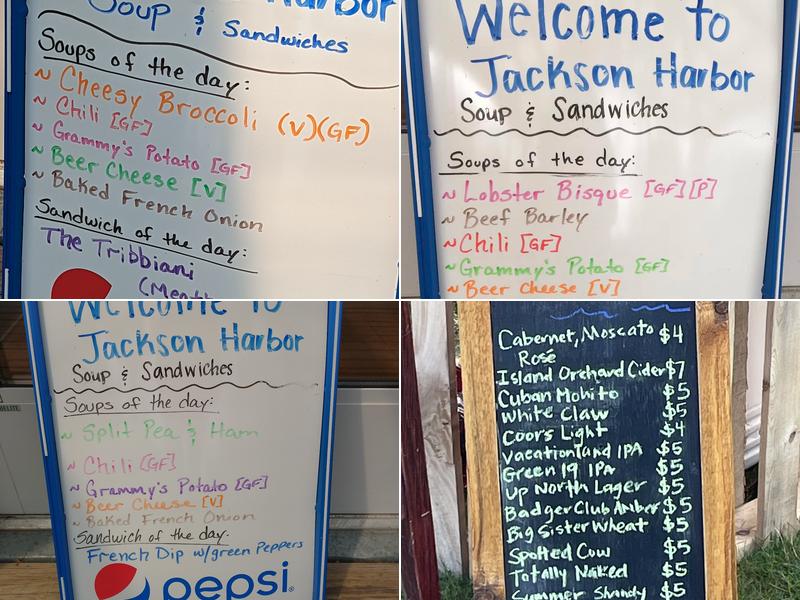 Harbor
Soup & Sandwiches
Soups of the day:
~ Cheesy Broccoli (V)(GF)
~ Chili [GF]
~ Grammy's Potato [GF]
~ Beer Cheese [V]
~ Baked French Onion
Sandwich of the day:
The Tribbiani
Welcome to
Jackson Harbor
Soup & Sandwiches
Soups of the day:
~ Lobster Bisque [GF][P]
~ Beef Barley
~ Chili [GF]
~ Grammy's Potato [GF]
~ Beer Cheese [V]
Welcome to
Jackson Harbor
Soup & Sandwiches
Soups of the day:
~ Split Pea & Ham
~ Chili [GF]
~ Grammy's Potato [GF]
~ Beer Cheese [V]
~ Baked French Onion
Sandwich of the day.
French Dip w/green Peppers
pepsi
Cabernet, Moscato $4
Rosé
Island Orchard Cider $7
Cuban Mohito $5
White Claw $5
Coors Light $4
Vacationland IPA $5
Green 19 IPA $5
Up North Lager $5
Badger Club Amber $5
Big Sister Wheat $5
Spotted Cow $5
Totally Naked $5
Summer Shandy $5